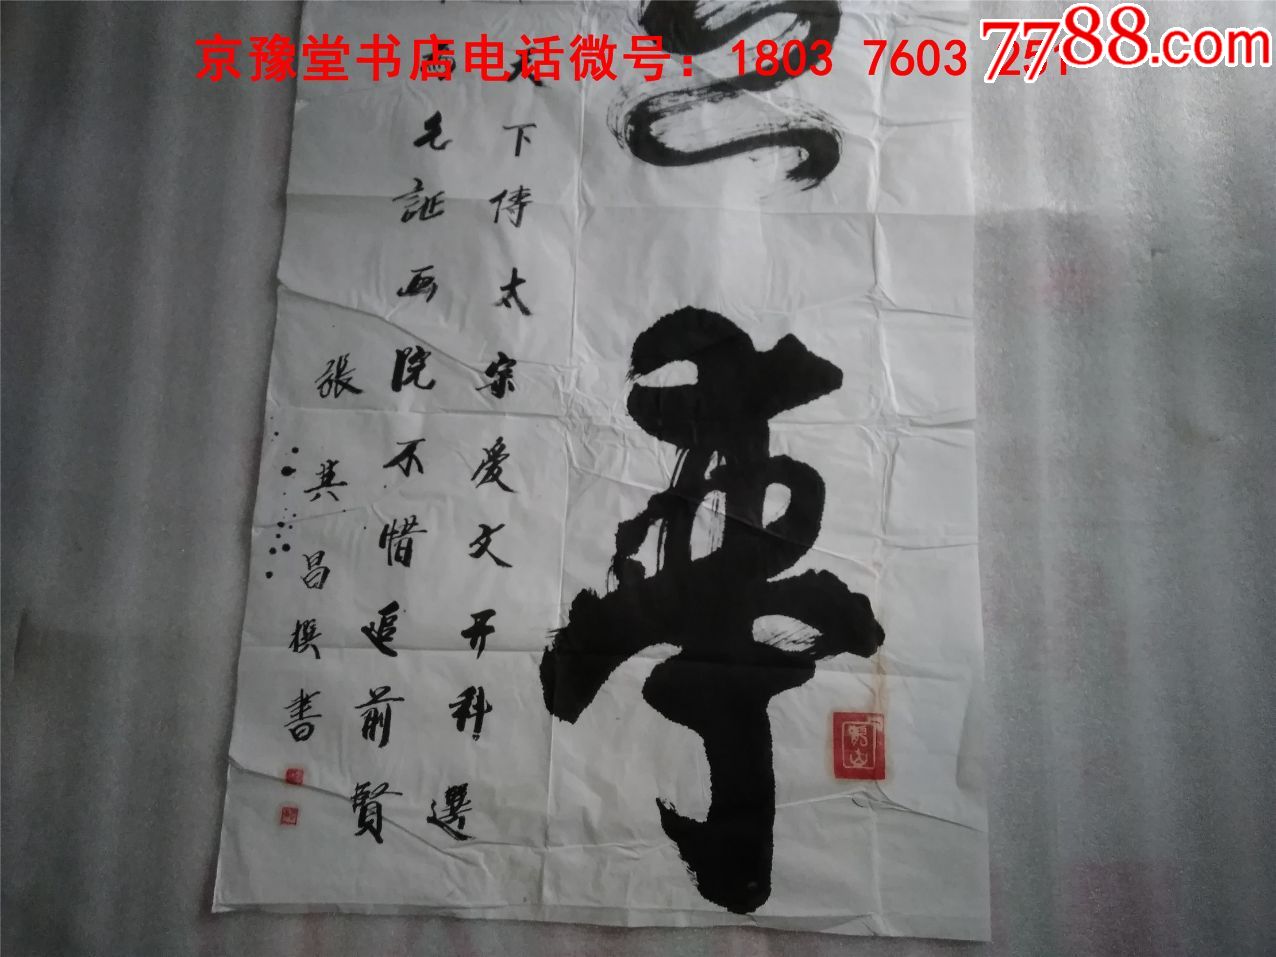 京豫堂书店电话微号：1803 7603 251
7788.com
天下传太宗爱文开科選
诞画院不惜追前賢
張其昌撰書